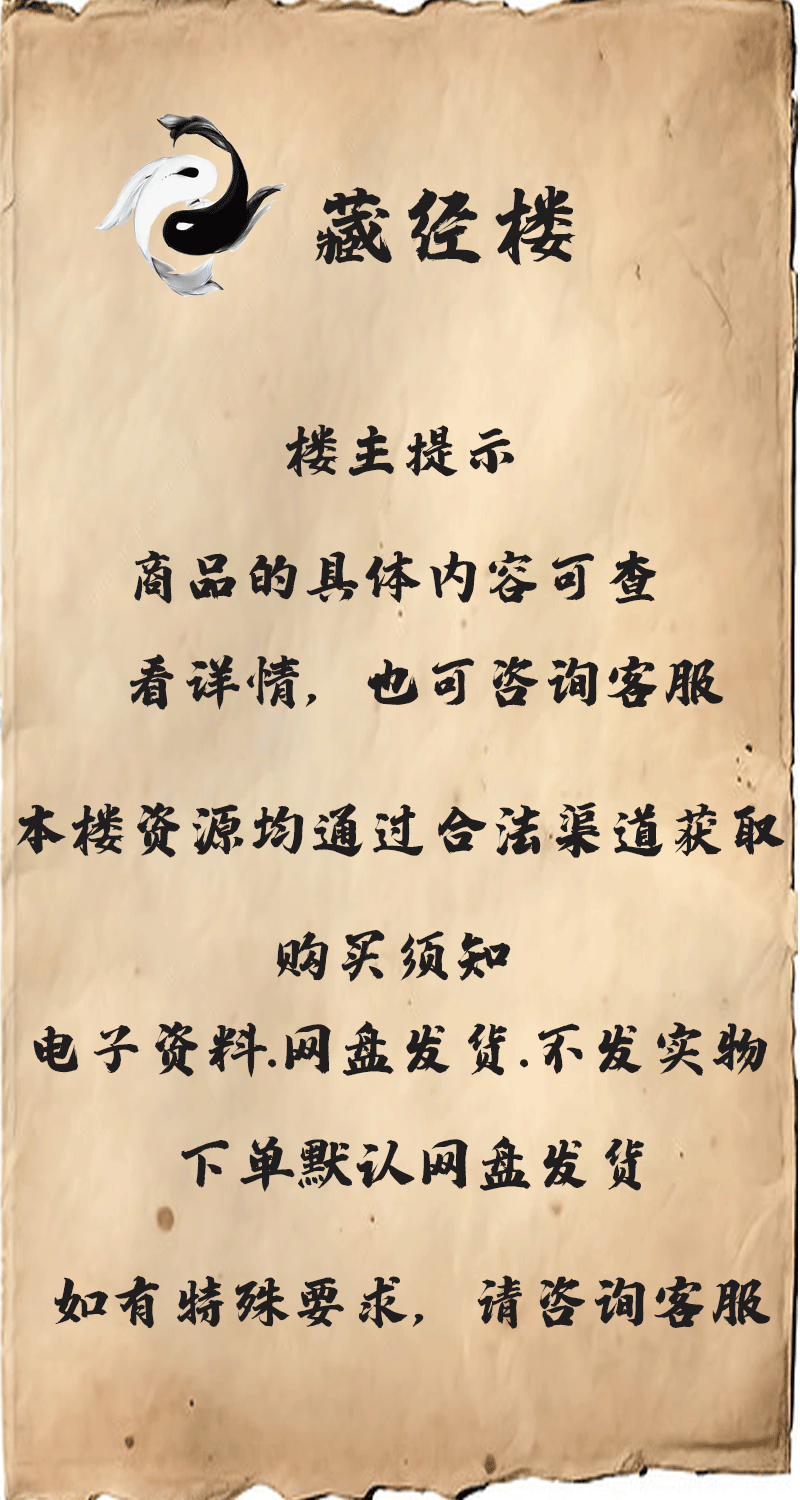 藏经楼
楼主提示
商品的具体内容可查
看详情，也可咨询客服
本楼资源均通过合法渠道获取
购买须知
电子资料.网盘发货.不发实物
下单默认网盘发货
如有特殊要求，请咨询客服